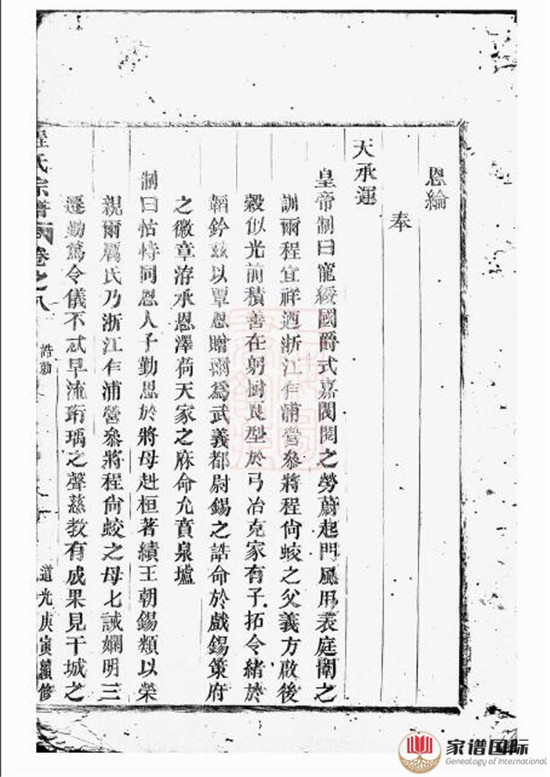 恩綸
奉
天承運
皇帝制曰寵綏國爵式嘉閥閱之勞蔚起門風用表庭闈之
訓爾程宜祥迺浙江乍浦營參將程尙蛟之父義方啟後
穀似光前積善在躬樹良型於弓冶克家有子拓令緒於
韜鈐玆以覃恩贈爾爲武義都尉錫之誥命於戲錫策府
之徽章洊承恩澤荷天家之庥命允賁泉壚
制曰怙恃同恩人子勤思於將母赳桓著績王朝錫類以榮
親爾厲氏乃浙江乍浦營參將程尙蛟之母七誡嫻明三
遷勤篤令儀不忒早流珩瑀之聲慈教有成果見干城之
程氏宗譜 卷之八
誥勅
道光庚寅續修
家谱国际
Genealogy of International